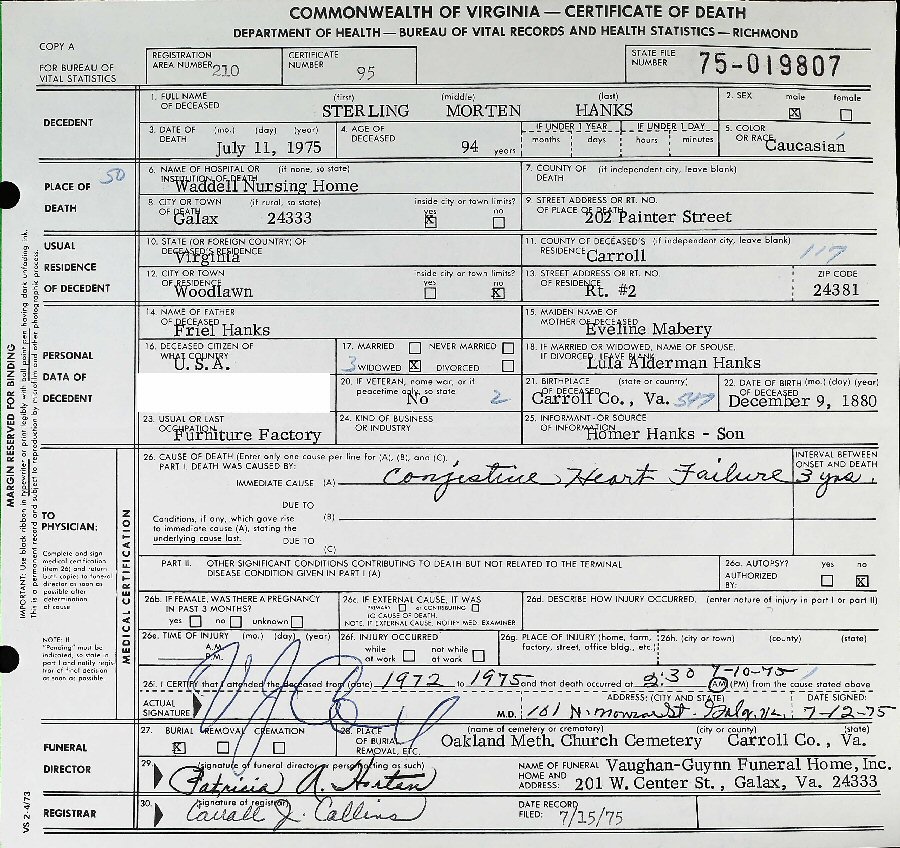 COMMONWEALTH OF VIRGINIA — CERTIFICATE OF DEATH
DEPARTMENT OF HEALTH — BUREAU OF VITAL RECORDS AND HEALTH STATISTICS — RICHMOND
COPY A
FOR BUREAU OF VITAL STATISTICS
REGISTRATION AREA NUMBER 210
CERTIFICATE NUMBER 95
STATE FILE NUMBER 75-019807
DECEDENT
1. FULL NAME OF DECEASED (first) (middle) (last)
STERLING MORTEN HANKS
2. SEX male ☒ female ☐
3. DATE OF DEATH (mo.) (day) (year)
July 11, 1975
4. AGE OF DECEASED 94 years
IF UNDER 1 YEAR months days
IF UNDER 1 DAY hours minutes
5. COLOR OR RACE Caucasian
PLACE OF DEATH
50
6. NAME OF HOSPITAL OR INSTITUTION OF DEATH (if none, so state)
Waddell Nursing Home
7. COUNTY OF DEATH (if independent city, leave blank)
8. CITY OR TOWN OF DEATH (if rural, so state) inside city or town limits? yes ☒ no ☐
Galax 24333
9. STREET ADDRESS OR RT. NO. OF PLACE OF DEATH
202 Painter Street
USUAL RESIDENCE OF DECEDENT
10. STATE (OR FOREIGN COUNTRY) OF DECEASED'S RESIDENCE
Virginia
11. COUNTY OF DECEASED'S RESIDENCE (if independent city, leave blank)
Carroll 117
12. CITY OR TOWN OF RESIDENCE inside city or town limits? yes ☐ no ☒
Woodlawn
13. STREET ADDRESS OR RT. NO. OF RESIDENCE
Rt. #2
ZIP CODE
24381
PERSONAL DATA OF DECEDENT
14. NAME OF FATHER OF DECEASED
Friel Hanks
15. MAIDEN NAME OF MOTHER OF DECEASED
Eveline Mabery
16. DECEASED CITIZEN OF WHAT COUNTRY
U.S.A.
17. MARRIED ☐ NEVER MARRIED ☐
3 WIDOWED ☒ DIVORCED ☐
18. IF MARRIED OR WIDOWED, NAME OF SPOUSE. IF DIVORCED, LEAVE BLANK
Lula Alderman Hanks
20. IF VETERAN, name war, or if peacetime only, so state
No 2
21. BIRTHPLACE OF DECEASED (state or country)
Carroll Co., Va. 547
22. DATE OF BIRTH (mo.) (day) (year) OF DECEASED
December 9, 1880
23. USUAL OR LAST OCCUPATION
Furniture Factory
24. KIND OF BUSINESS OR INDUSTRY
25. INFORMANT-OR SOURCE OF INFORMATION
Homer Hanks - Son
TO PHYSICIAN:
Complete and sign medical certification (item 26) and return both copies to funeral director as soon as possible after determination of cause
NOTE: If "Pending" must be indicated, so state in part I and notify registrar of final decision as soon as possible
MEDICAL CERTIFICATION
26. CAUSE OF DEATH (Enter only one cause per line for (A), (B), and (C).
PART I. DEATH WAS CAUSED BY:
INTERVAL BETWEEN ONSET AND DEATH
IMMEDIATE CAUSE (A) Conjestive Heart Failure 3 yrs.
DUE TO
Conditions, if any, which gave rise to immediate cause (A), stating the underlying cause last.
(B)
DUE TO
(C)
PART II. OTHER SIGNIFICANT CONDITIONS CONTRIBUTING TO DEATH BUT NOT RELATED TO THE TERMINAL DISEASE CONDITION GIVEN IN PART I (A)
26a. AUTOPSY? AUTHORIZED BY: yes ☐ no ☒
26b. IF FEMALE, WAS THERE A PREGNANCY IN PAST 3 MONTHS?
yes ☐ no ☐ unknown ☐
26c. IF EXTERNAL CAUSE, IT WAS
PRIMARY ☐ or CONTRIBUTING ☐
TO CAUSE OF DEATH.
NOTE. IF EXTERNAL CAUSE, NOTIFY MED. EXAMINER
26d. DESCRIBE HOW INJURY OCCURRED. (enter nature of injury in part I or part II)
26e. TIME OF INJURY (mo.) (day) (year)
A.M.
P.M.
26f. INJURY OCCURRED
while at work ☐ not while at work ☐
26g. PLACE OF INJURY (home, farm, factory, street, office bldg., etc.)
26h. (city or town) (county) (state)
7-10-75
26i. I CERTIFY that I attended the deceased from (date) 1972 to 1975 and that death occurred at 2:30 (AM) (PM) from the cause stated above
ACTUAL SIGNATURE
M.D.
ADDRESS: (CITY AND STATE)
101 N. Monroe St. Galax, Va.
DATE SIGNED:
7-12-75
FUNERAL DIRECTOR
27. BURIAL ☒ REMOVAL ☐ CREMATION ☐
28. PLACE OF BURIAL, REMOVAL, ETC.
(name of cemetery or crematory) (city or county) (state)
Oakland Meth. Church Cemetery Carroll Co., Va.
29. (signature of funeral director or person acting as such)
Patricia A. Horton
NAME OF FUNERAL HOME AND ADDRESS:
Vaughan-Guynn Funeral Home, Inc.
201 W. Center St., Galax, Va. 24333
REGISTRAR
30. (signature of registrar)
Carrall J. Collins
DATE RECORD FILED: 7/15/75
MARGIN RESERVED FOR BINDING
IMPORTANT: Use black ribbon in typewriter or print legibly with ball point pen having dark unfading ink.
This is a permanent record and subject to reproduction by microfilm and other photographic process.
VS 2-4/73